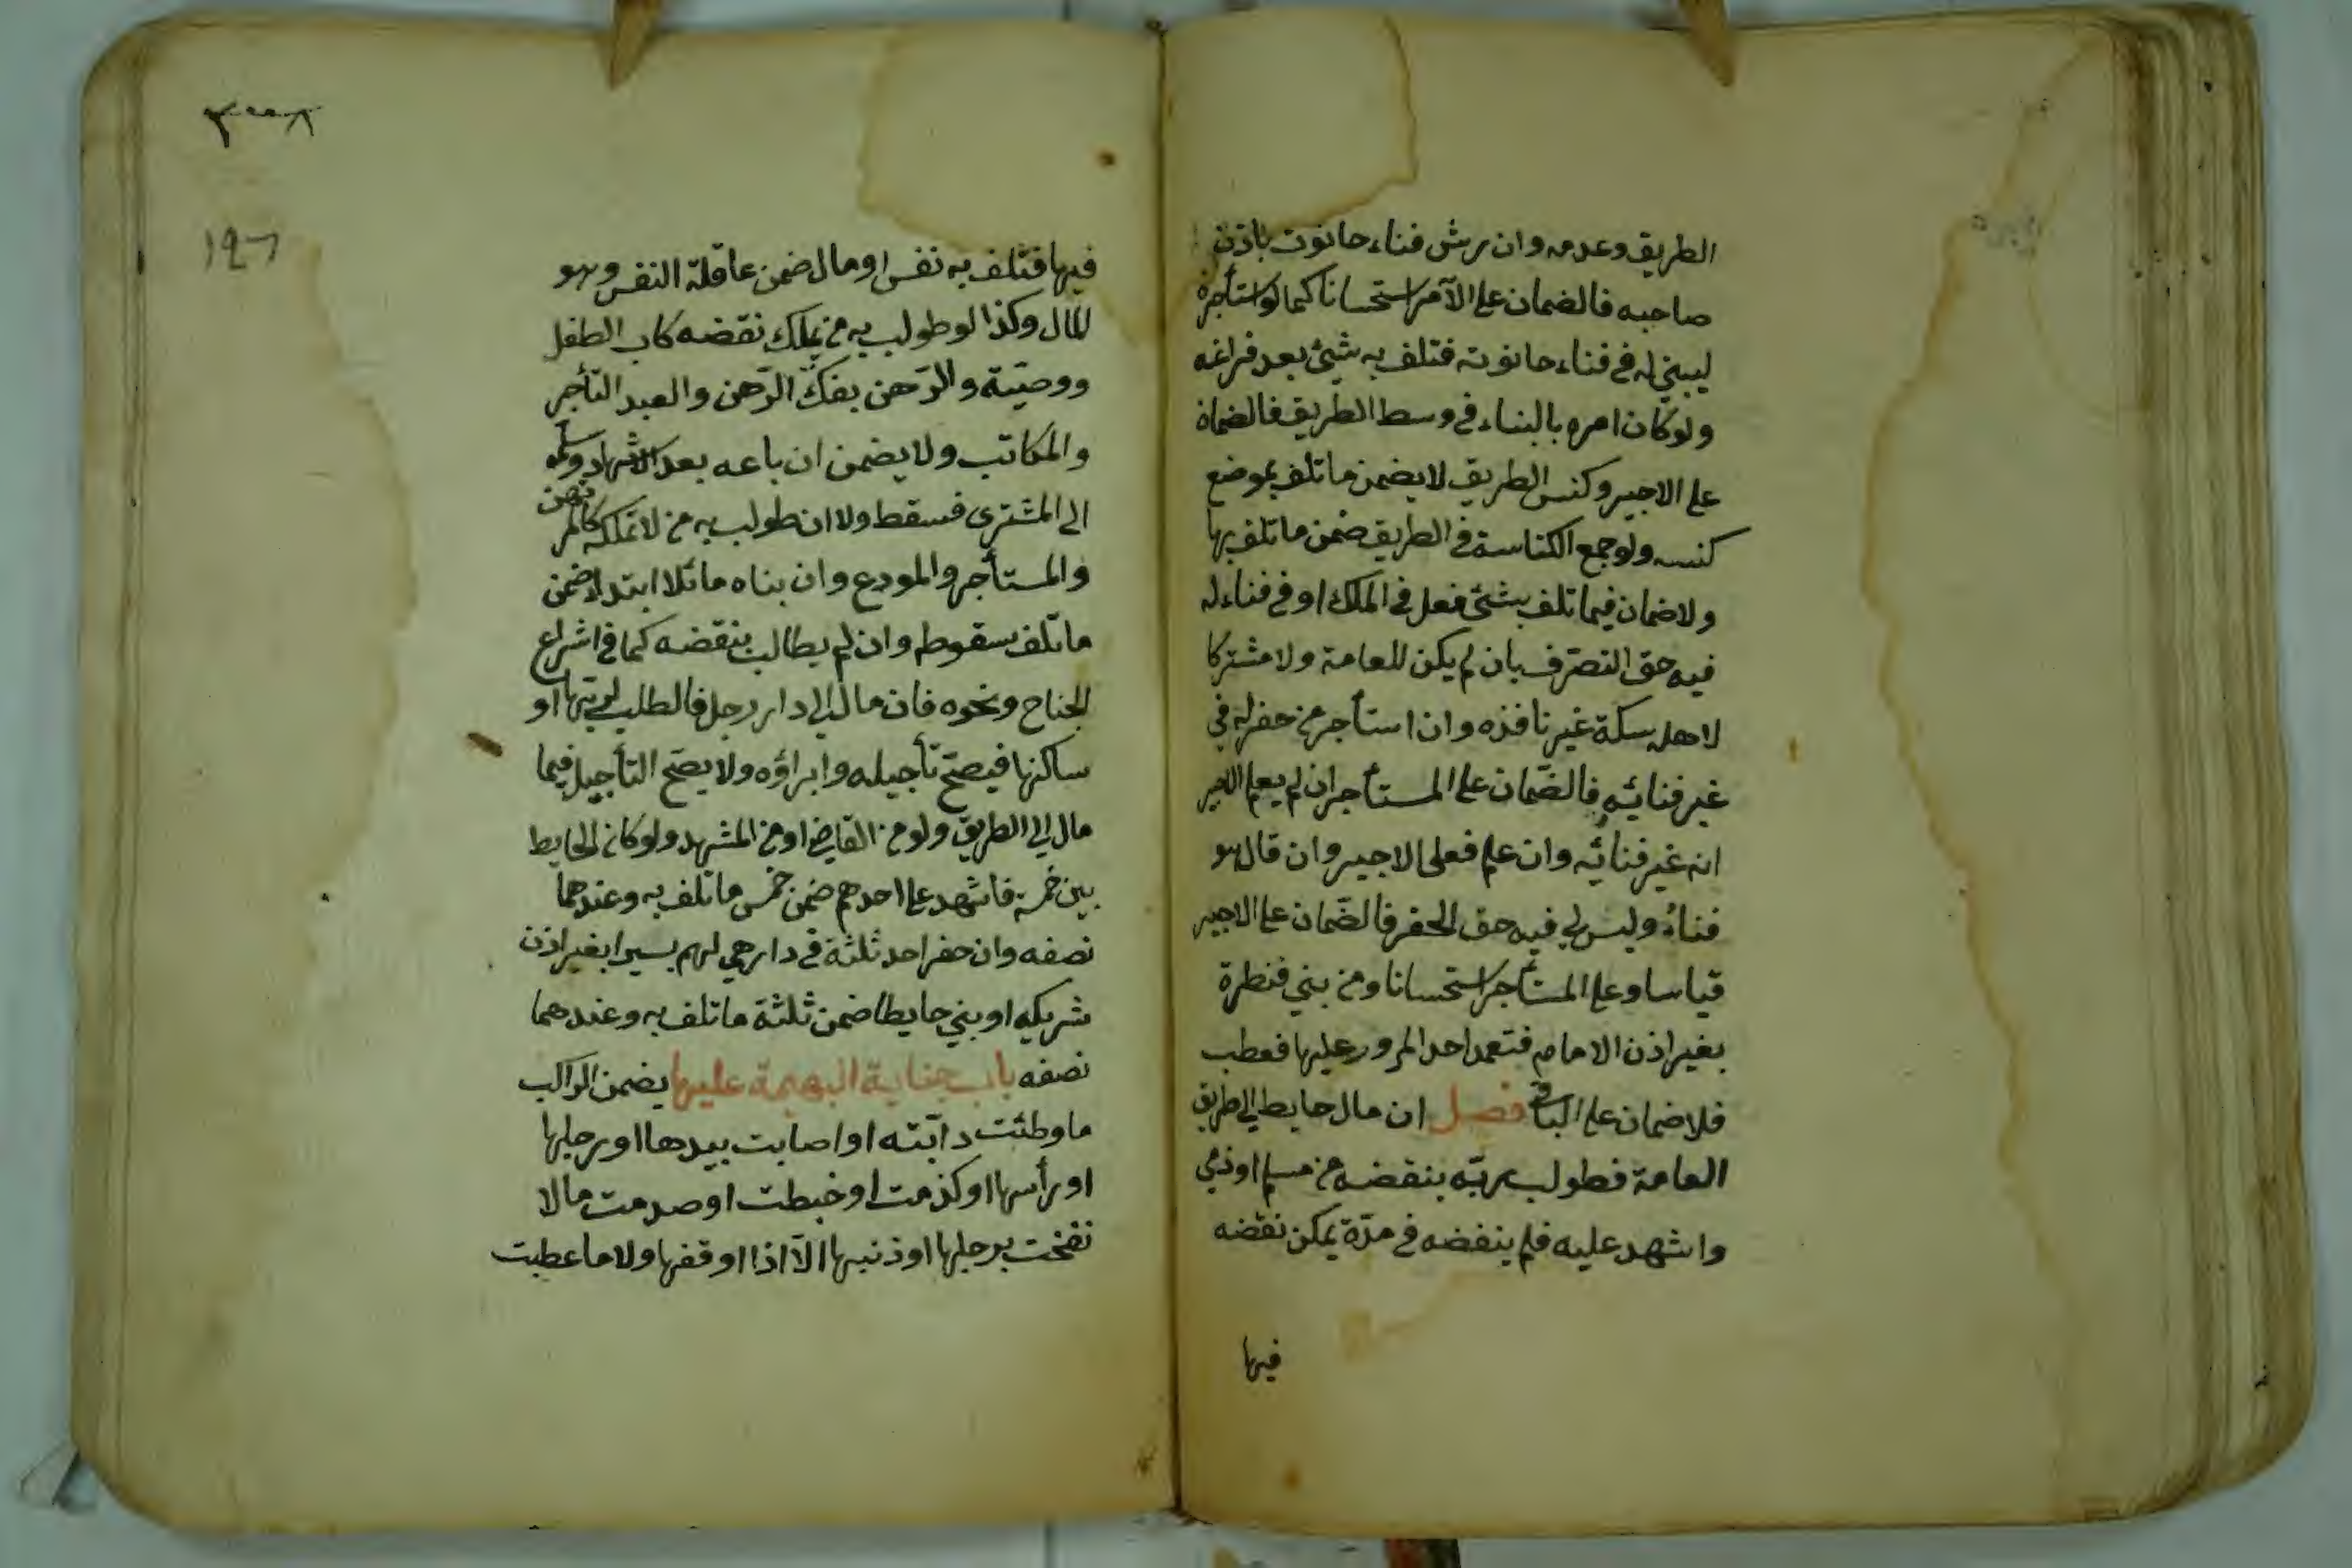 الطريق وعدمه وان رش فناء حانوت باذن
صاحبه فالضمان على الآمر استحسانا كما لو استأجره
ليبني له في فناء حانوته فتلف به شيئ بعد فراغه
ولو كان امره بالبناء في وسط الطريق فالضمان
على الاجير وكنس الطريق لا يضمن ما تلف بموضع
كنسه ولو جمع الكناسة في الطريق ضمن ما تلف بها
ولا ضمان فيما تلف بشئ فعل في الملك او في فناء له
فيه حق التصرف بان لم يكن للعامة ولا مشتركا
لاهل سكة غير نافذه وان استأجر من حفر له في
غير فنائه فالضمان على المستأجر ان لم يعلم الاجير
انه غير فنائه وان علم فعلى الاجير وان قال هو
فناؤ وليس لي فيه حق الحفر فالضمان على الاجير
قياسا وعلى المستأجر استحسانا ومن بني قنطرة
بغير اذن الامام فتعمد احد المرور عليها فعطب
فلا ضمان على الباني فصل ان مال حايط الى طريق
العامة فطولب ربه بنقضه من مسلم او ذمي
واشهد عليه فلم ينقضه في مدّة يمكن نقضه
فيها
١٩٦
فيها فتلف به نفس او مال ضمن عاقلة النفس وهو
المال وكذا لو طولب به من يملك نقضه كاب الطفل
ووصيّه والرّاهن بفكّ الرّهن والعبد التأجر
والمكاتب ولا يضمن ان باعه بعد الاشهاد وسلمه
الى المشترى فسقط ولا ان طولب به من لا تملكه كالمرتهن
والمستأجر والمودع وان بناه مائلا ابتداء ضمن
ما تلف بسقوطه وان لم يطالب بنقضه كما في اشراع
الجناح ونحوه فان مال الى دار رجل فالطلب لربّها او
ساكنها فيصحّ تأجيله وابراؤه ولا يصحّ التأجيل فيما
مال الى الطريق ولو من القاضي او من المشهد ولو كان الحايط
بين خمسة فاشهد على احدهم ضمن خمس ما تلف به وعندهما
نصفه وان حفر احد ثلثة في دار هي لهم بئيرا بغير اذن
شريكه او بني حايطا ضمن ثلثة ما تلف به وعندهما
نصفه باب جناية البهيمة عليها يضمن الراكب
ما وطئت دآبّته او اصابت بيدها او رجلها
او رأسها او كدمت او خبطت او صدمت ما لا
نفخت برجلها او ذنبها الّا اذا اوقفها ولا ما عطبت